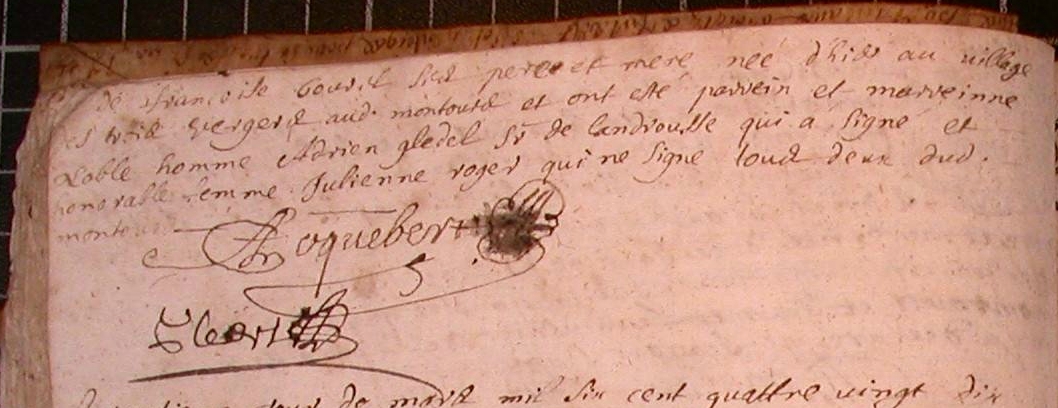 de françoise bourel ses pere et mere née d'hier au village
des trois vergers aud. montours et ont esté parrein et marreinne
noble homme Adrien gledel Sr de landrousse qui a signé et
honorable femme Julienne roger qui ne signe tous deux dud.
montours
Roquebert
jour de mars mil six cent quattre vingt dix